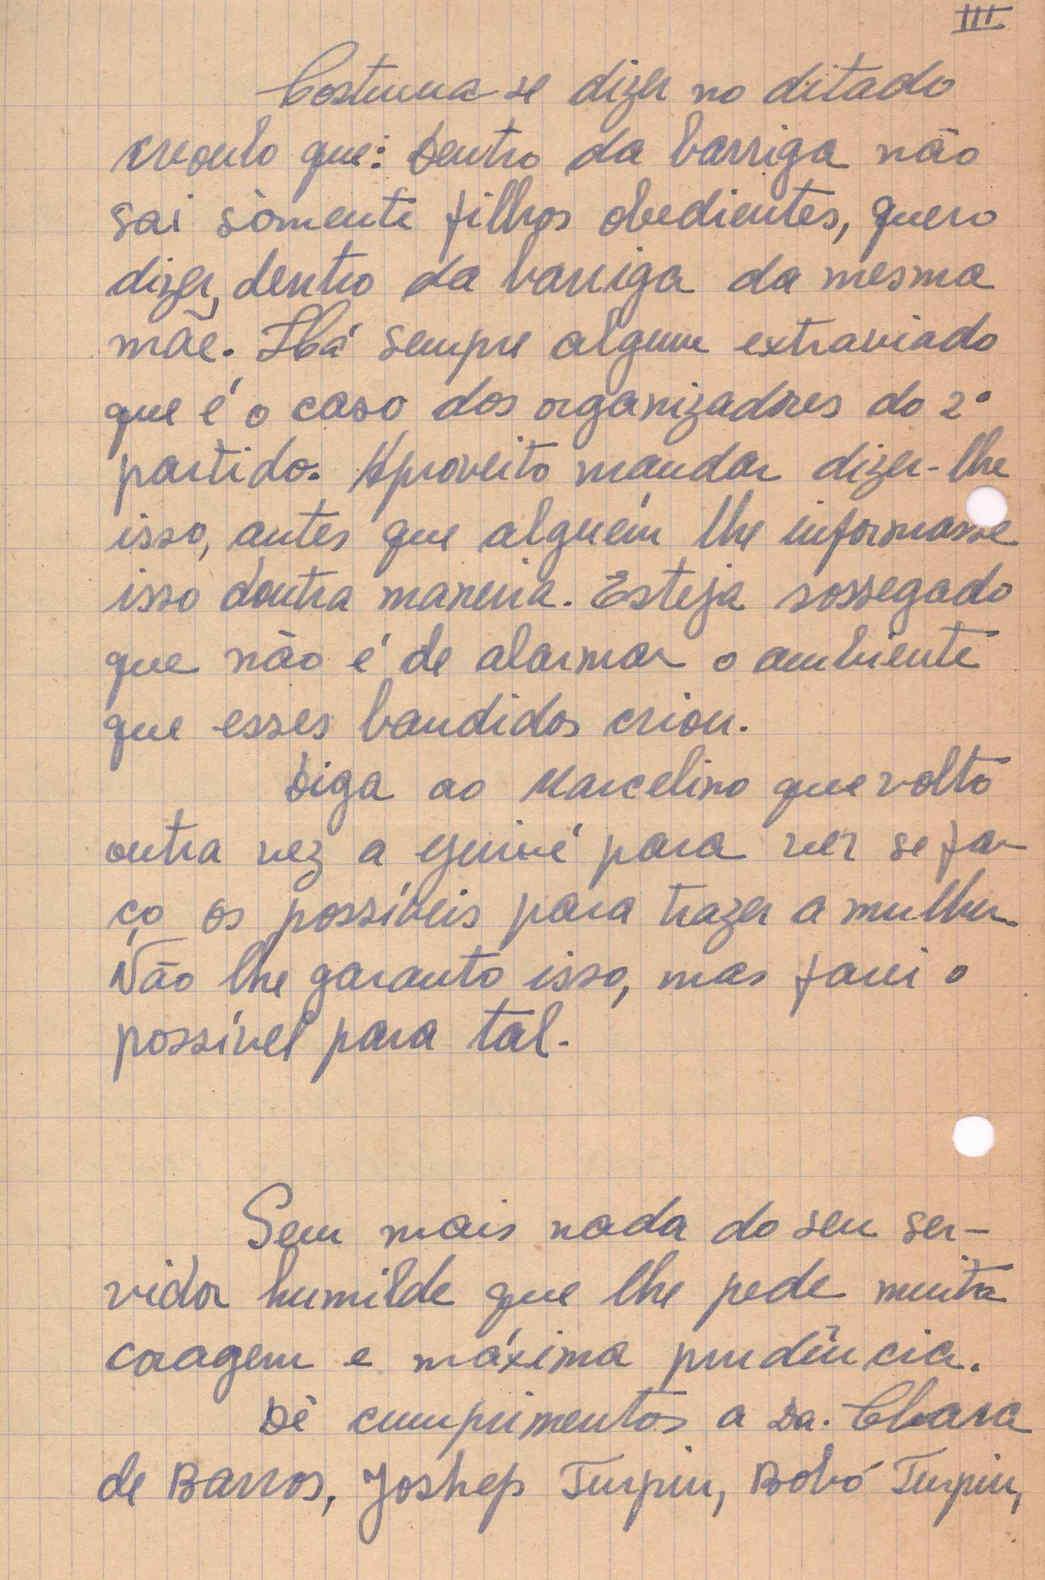 III
Costuma-se dizer no ditado
creoulo que: Dentro da barriga não
sai sòmente filhos obedientes, quero
dizer, dentro da barriga da mesma
mãe. Há sempre algum extraviado
que é o caso dos organizadores do 2º
partido. Aproveito mandar dizer-lhe
isso, antes que alguém lhe informasse
isso doutra maneira. Esteja sossegado
que não é de alarmar o ambiente
que esses bandidos criou.
Diga ao Marcelino que volto
outra vez a Guiné para ver se fa-
ço os possíveis para trazer a mulher.
Não lhe garanto isso, mas farei o
possível para tal.
Sem mais nada do seu ser-
vidor humilde que lhe pede muita
coragem e máxima prudência.
Dê cumprimentos a Da. Clara
de Barros, Joshep Turpin, Bobó Turpin,